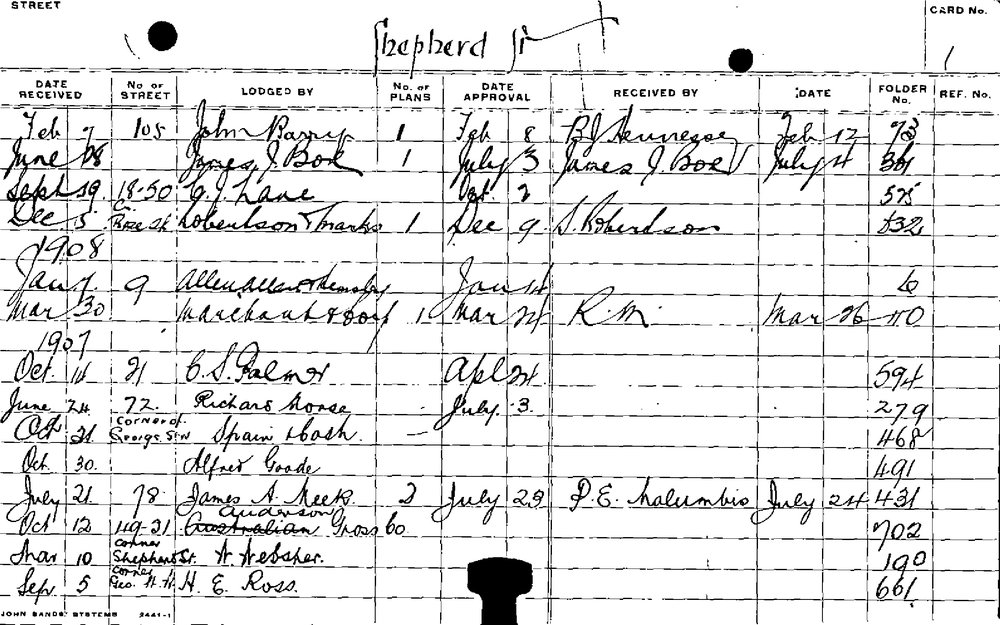 STREET
Shepherd St
CARD No.
1
DATE RECEIVED No OF STREET LODGED BY No. OF PLANS DATE APPROVAL RECEIVED BY DATE FOLDER No. REF. No.
Feb 7 105 John Barry 1 Feb 8 B J Hennessy Feb 12 73
June 28 James J. Boe 1 July 3 James J. Boe July 4
Sept 19 18-50 C. J. Lane Oct. 2 525
Dec 5 C. Rose St Robertson & Marks 1 Dec 9 S. Robertson
1908
Jan 7 9 Allen Allen & Hemsley Jan 14 6
Mar 30 Marchant & 1 Mar 24 R. M. Mar 26 110
1907
Oct. 14 21 C. S. Palmer Apl 24 594
June 24 72. Richard Morse July. 3. 279
Oct 21 Corner of George St W Spain & Cosh. — 468
Oct. 30. Alfred Goode 491
July 21 78 James A. Meek. 2 July 23 P. E. July 24 431
Anderson
Oct 12 49-21 Australian Gross Co. 702
Mar 10 corner Shepherd St. A. Webster. 190
Sep. 5 corner Geo. St. W. H. E. Ross. 661
JOHN SANDS SYSTEMS 2441-1